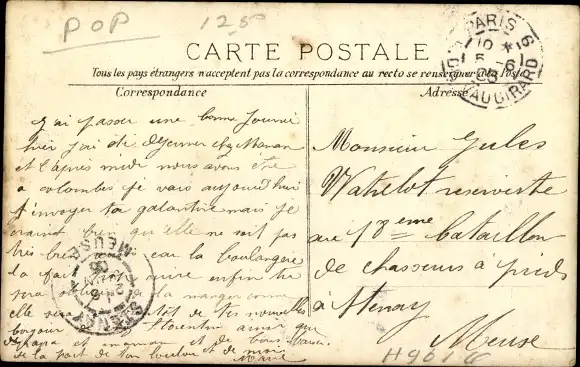 POP 125
CARTE POSTALE
Tous les pays étrangers n'acceptent pas la correspondance au recto se renseigner à la Poste
Correspondance
Adresse
PARIS
10 *
5 - 6
VAUGIRARD
j'ai passer une bonne journee
hier j'ai été dejeuner chez Maman
et l'après midi nous avons été
a colombes je vais aujourd'hui
t'envoyer ta galantine mais je
craint bien qu'elle ne soit pas
très bien car la boulangere
la fait cuire enfin tu
sera la manger comme
elle sera de tes nouvelles
bonjour Florentin ainsi que
papa et maman et de
de la part de ton loulou et de moi
Marie
MEUSE
STENAY
Monsieur Jules
Watrelot reserviste
au 18eme bataillon
de chasseurs à pieds
à Stenay
Meuse
H961